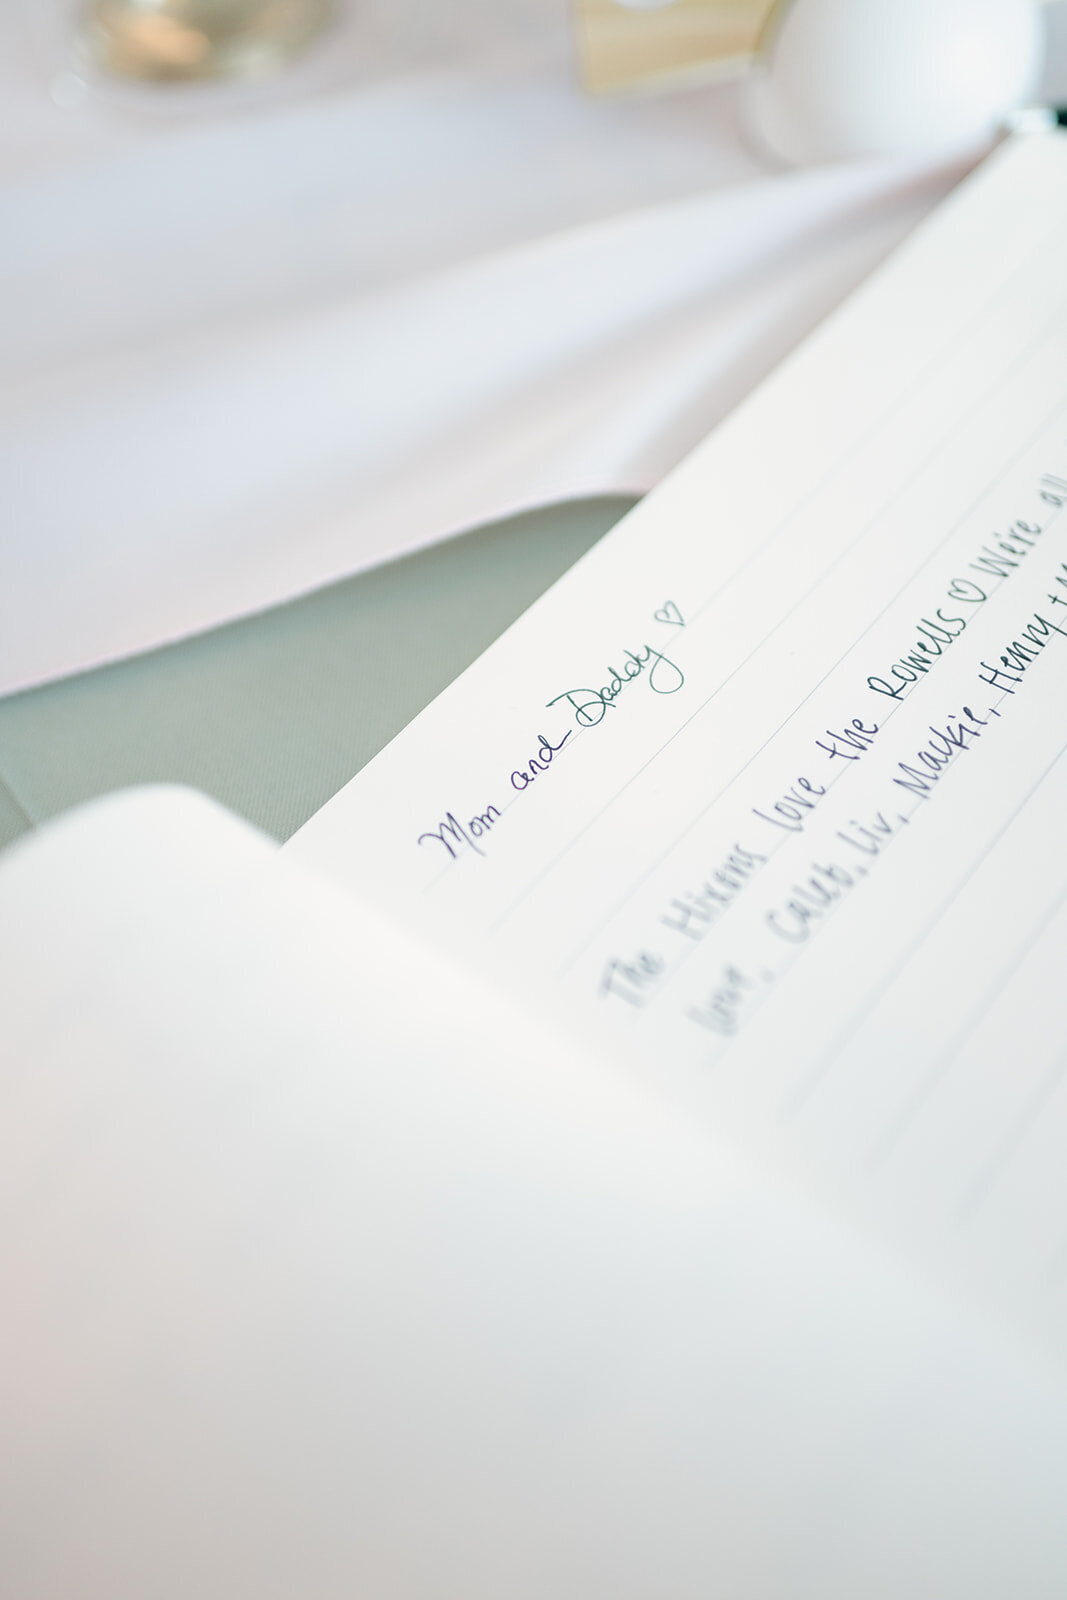 Mom and Daddy ♡
The Hixons love the Rowells ♡ We're all
love, Caleb, Liv, Mackie, Henny +